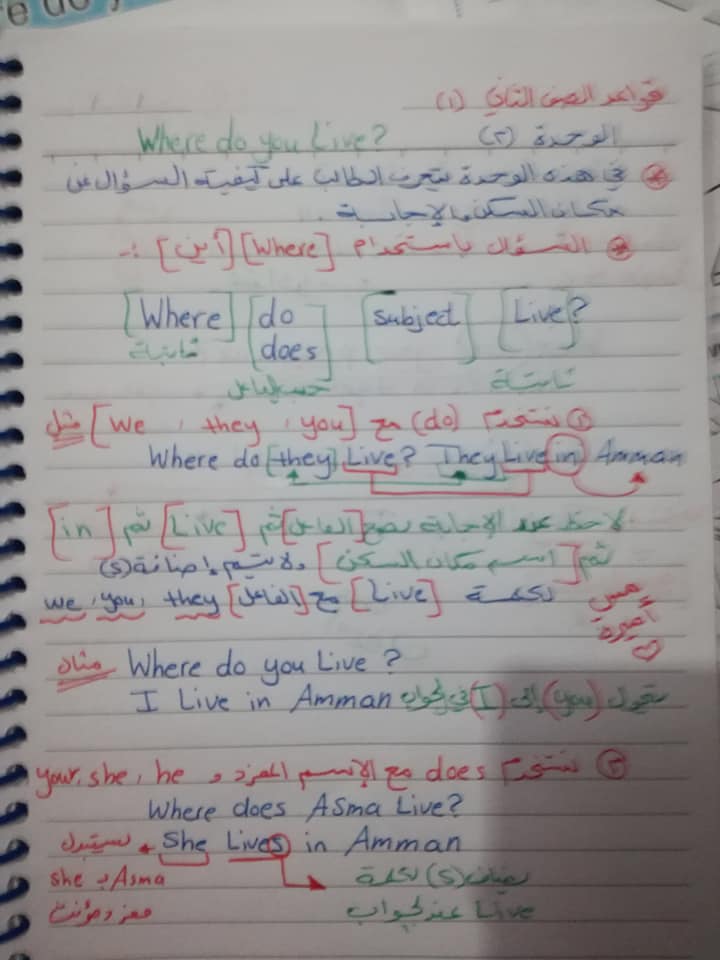 e do y
قواعد الصف الثاني (١)
الوحدة (٢) Where do you Live?
في هذه الوحدة يتعرف الطالب على كيفيته السؤال عن
مكان السكن والإجابة.
السؤال باستخدام [Where] [أين] :-
[Where] [do does] [subject] [Live]?
ثابتة حسب الفاعل ثابتة
① نستخدم (do) مع [we , they , you] مثل
Where do [they] Live? They Live in Amman
لاحظ عند الإجابة نضع [الفاعل] ثم [Live] ثم [in]
ثم [اسم مكان السكن] ولا يتم إضافة (s)
لكلمة [Live] مع [الفاعل] we, you, they
مس
أميرة
مثال Where do you Live?
I Live in Amman يتحول (you) إلى (I) في الجواب
② نستخدم does مع الإسم المفرد و your, she, he
Where does Asma Live?
She Lives in Amman سيتبدل
يضاف (s) لكلمة she بـ Asma
Live عند الجواب مفرد مؤنث